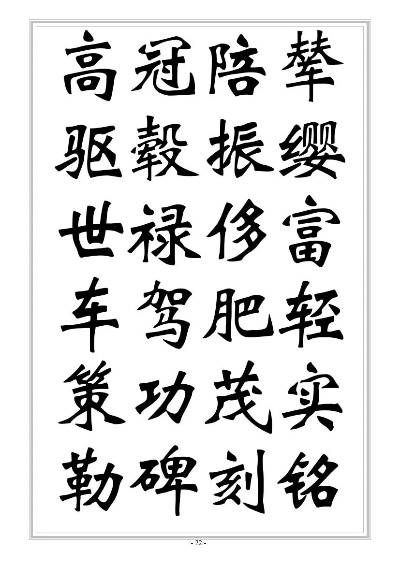 高冠陪辇
驱毂振缨
世禄侈富
车驾肥轻
策功茂实
勒碑刻铭
- 22 -